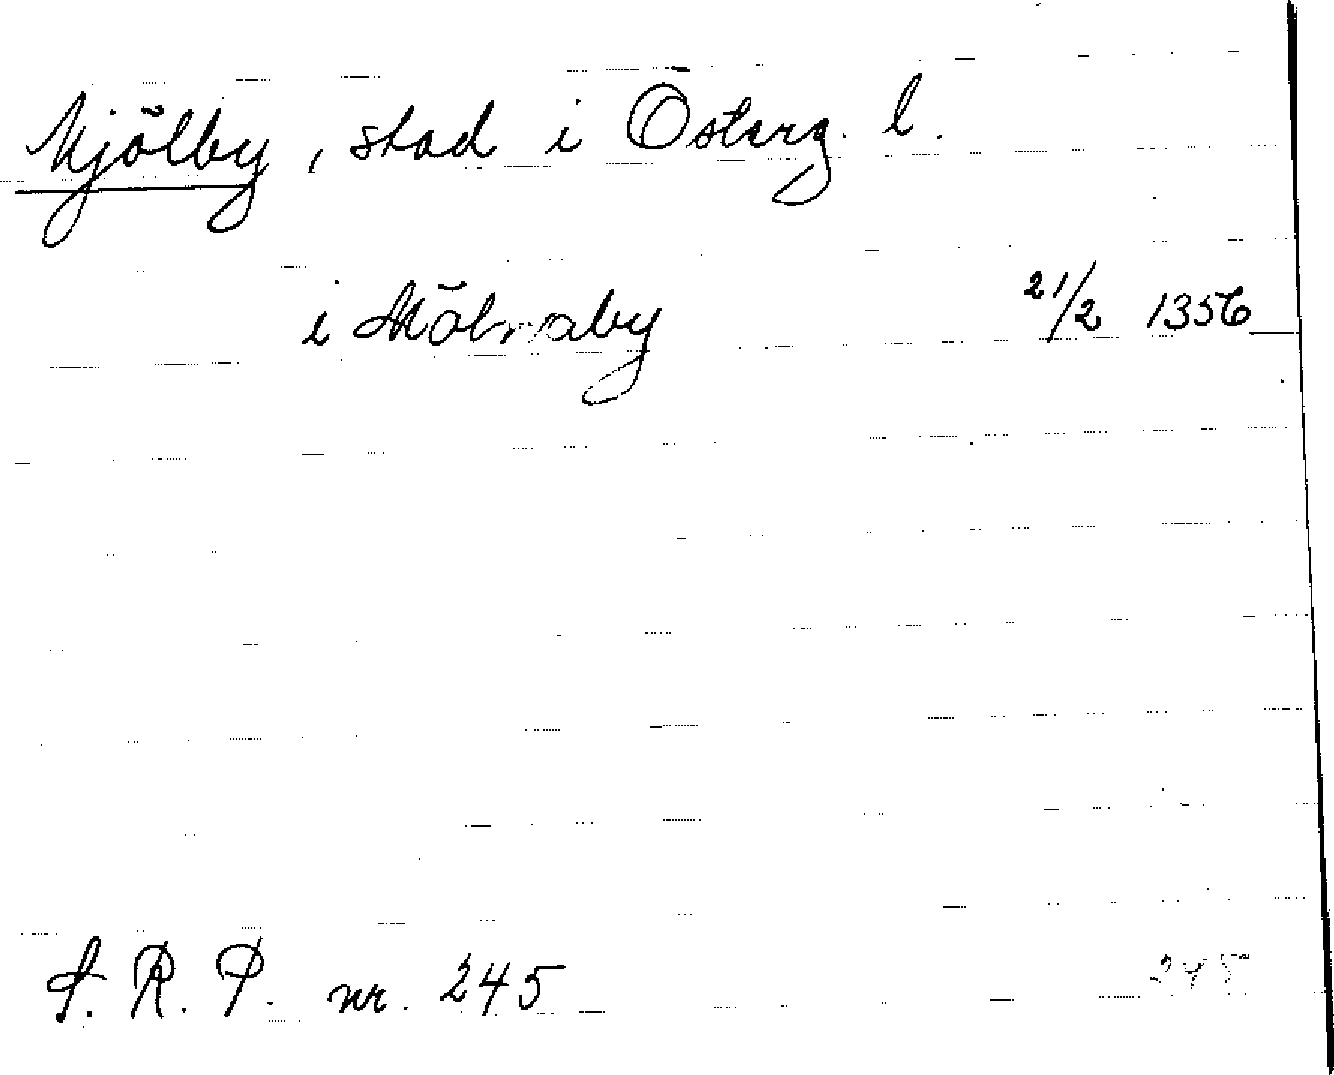 Mjölby, stad i Österg. l.
i Mölnaby 21/2 1356
S. R. P. nr. 245 245